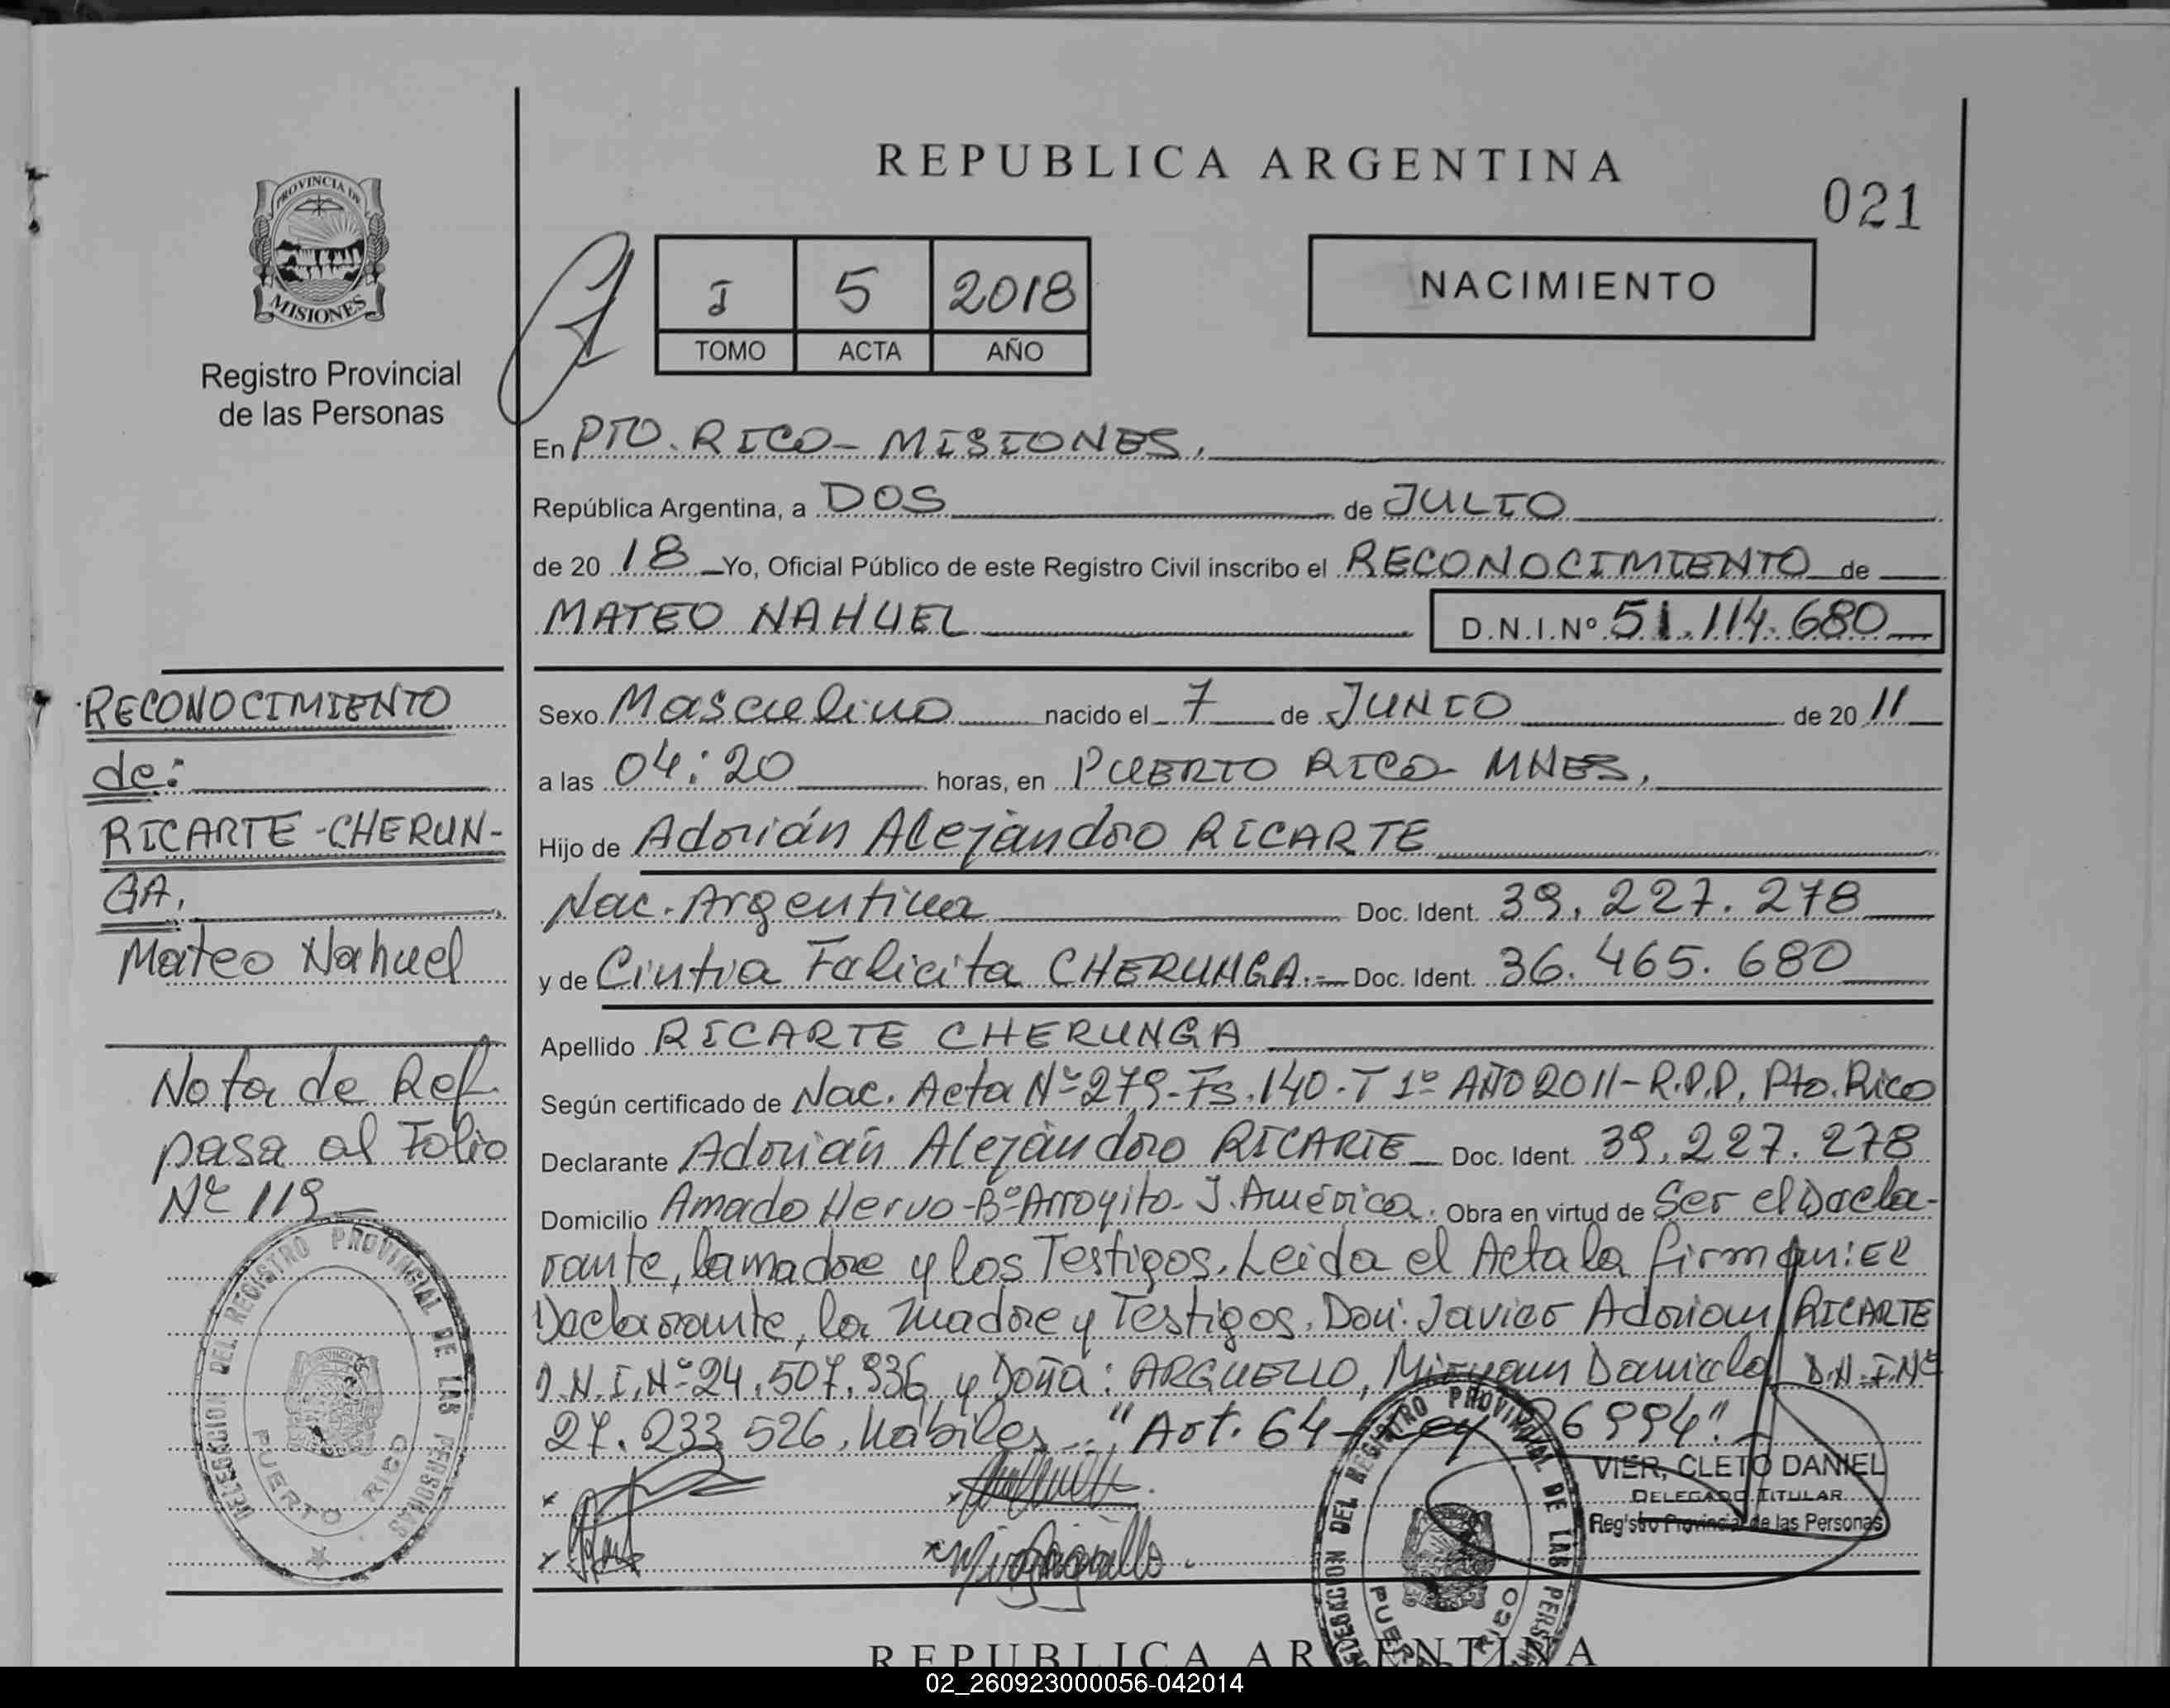 REPUBLICA ARGENTINA
021
PROVINCIA DE
MISIONES
Registro Provincial
de las Personas
I 5 2018
TOMO ACTA AÑO
NACIMIENTO
En PTO. RICO - MISIONES,
República Argentina, a DOS de JULIO
de 20 18 Yo, Oficial Público de este Registro Civil inscribo el RECONOCIMIENTO de
MATEO NAHUEL D.N.I.Nº 51.114.680
Sexo Masculino nacido el 7 de JUNIO de 20 11
a las 04:20 horas, en PUERTO RICO - MNES,
Hijo de Adrián Alejandro RICARTE
Nac. Argentina Doc. Ident. 39.227.278
y de Cintia Felicita CHERUNGA.- Doc. Ident. 36.465.680
Apellido RICARTE CHERUNGA
Según certificado de Nac. Acta Nº 279-Fs.140-T 1º AÑO 2011-R.P.P. Pto. Rico
Declarante Adrián Alejandro RICARTE Doc. Ident. 39.227.278
Domicilio Amado Hervo-Bº Arroyito-J. América. Obra en virtud de Ser el Decla-
rante, la madre y los Testigos. Leida el Acta la firman: El
Declarante, la madre y Testigos. Don: Javier Adrian RICARTE
D.N.I.Nº 24.507.936 y Doña: ARGUELLO, Miryam Daniela D.N.I.Nº
27.233.526, hábiles.- "Art. 64-Ley 26994".-
VIER, CLETO DANIEL
DELEGADO TITULAR
Registro Provincial de las Personas
RECONOCIMIENTO
de:
RICARTE - CHERUN-
GA.
Mateo Nahuel
Nota de Ref.
pasa al Folio
Nº 119
DELEGACION DEL REGISTRO PROVINCIAL DE LAS PERSONAS
PUERTO RICO
DELEGACION DEL REGISTRO PROVINCIAL DE LAS PERSONAS
PUERTO RICO
REPUBLICA ARGENTINA
02_260923000056-042014